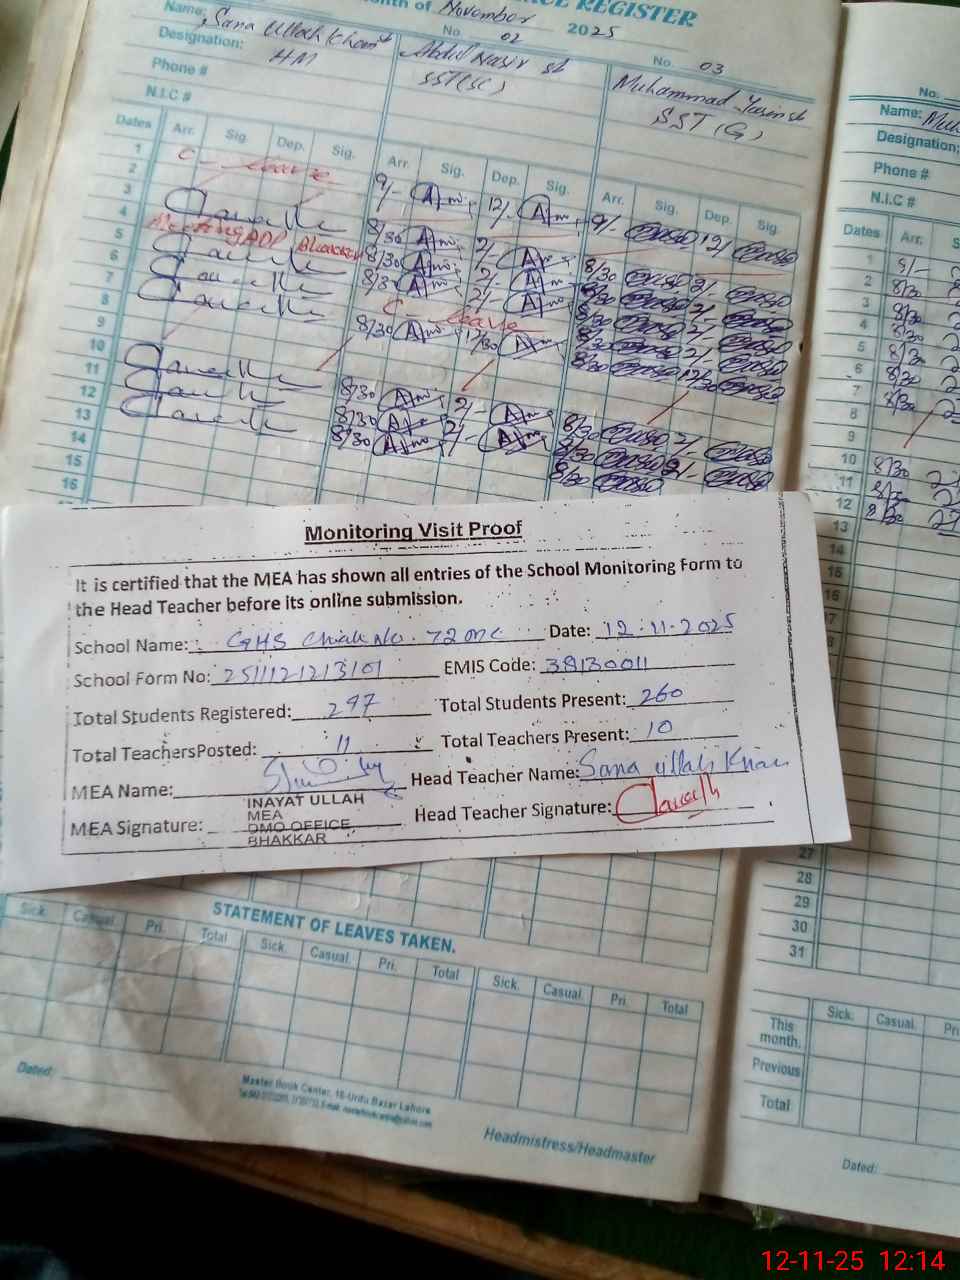 REGISTER
Month of November 2025
Name: Sana Ullah Khan
No. 02
No. 03
Designation: HM
Abdul Nasir
SST(SC)
Muhammad Yasin
SST (G)
Phone #
N.I.C #
Dates Arr. Sig. Dep. Sig. Arr. Sig. Dep. Sig. Arr. Sig. Dep. Sig.
1 C - leave
2
3 9/- 12/- 9/- 12/-
4 8/30 2/- 8/30 2/-
5 Meeting ADP Bhakkar 8/30 2/- 8/30 2/-
6 8/30 2/- 8/30 2/-
7 C - leave 8/30 2/-
8 8/30 12/30 8/30 12/30
9
10 8/30 2/- 8/30 2/-
11 8/30 2/- 8/30 2/-
12 8/30 2/- 8/30
13
14
15
16
No.
Name:
Designation:
Phone #
N.I.C #
Dates Arr.
1 9/-
2 8/30
3 8/30
4 8/30
5 8/30
6 8/30
7 8/30
8
9
10 8/30
11 8/30
12 8/30
13
14
15
16
17
18
19
Monitoring Visit Proof
It is certified that the MEA has shown all entries of the School Monitoring Form to
the Head Teacher before its online submission.
School Name: GHS Chak No. 72 ML Date: 12-11-2025
School Form No: 2511121213101 EMIS Code: 38130011
Total Students Registered: 297 Total Students Present: 260
Total TeachersPosted: 11 Total Teachers Present: 10
MEA Name: Head Teacher Name: Sana ullah Khan
MEA Signature: INAYAT ULLAH
MEA
DMO OFFICE
BHAKKAR
Head Teacher Signature:
27
28
29
30
31
STATEMENT OF LEAVES TAKEN.
Sick. Casual. Pri. Total Sick. Casual. Pri. Total Sick. Casual. Pri. Total
Sick. Casual. Pri
This month.
Previous
Total
Dated:
Master Book Center, 16-Urdu Bazar Lahore
Headmistress/Headmaster
Dated:
12-11-25 12:14